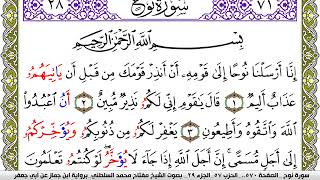 ٢٨ سُورَةُ نُوحٍ ٧١
بِسْمِ اللَّهِ الرَّحْمَٰنِ الرَّحِيمِ
إِنَّا أَرْسَلْنَا نُوحًا إِلَىٰ قَوْمِهِ أَنْ أَنذِرْ قَوْمَكَ مِن قَبْلِ أَن يَاتِيَهُمُ
عَذَابٌ أَلِيمٌ ١ قَالَ يَٰقَوْمِ إِنِّي لَكُمُ نَذِيرٌ مُّبِينٌ ٢ أَنُ اعْبُدُوا
اللَّهَ وَاتَّقُوهُ وَأَطِيعُونِ ٣ يَغْفِرْ لَكُمُ مِن ذُنُوبِكُمُ وَيُوَخِّرْكُمُ
إِلَىٰ أَجَلٍ مُّسَمًّى إِنَّ أَجَلَ اللَّهِ إِذَا جَاءَ لَا يُوَخَّرُ لَوْ كُنتُمُ تَعْلَمُونَ
سورة نوح . الصفحة ٥٧٠.. الحزب ٥٧ الجزء ٢٩ . بصوت الشيخ مفتاح محمد السلطني. برواية ابن جماز عن أبي جعفر